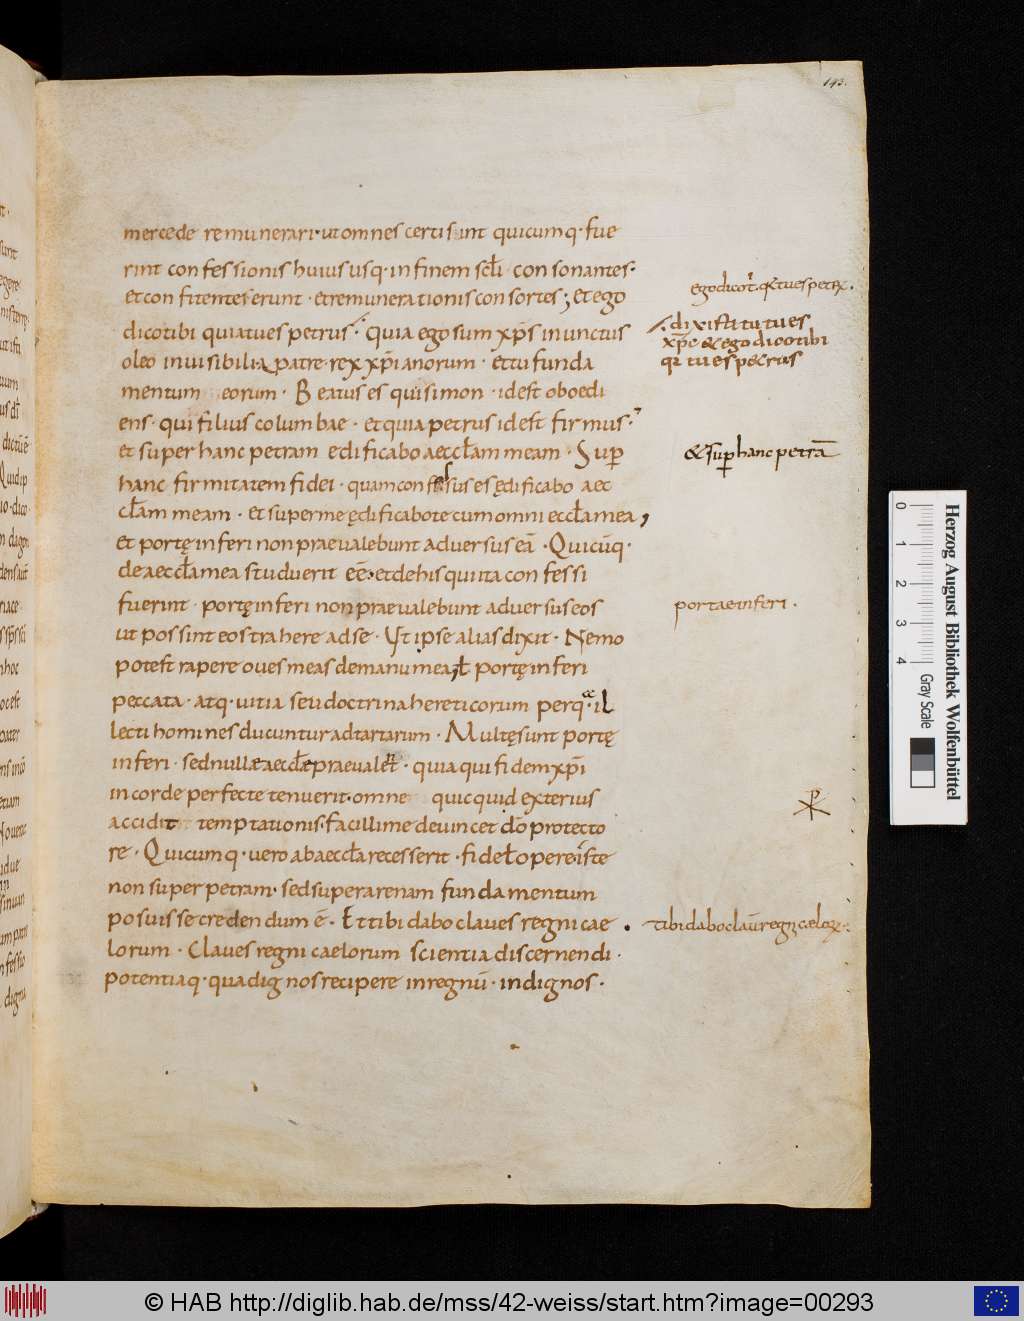 143.
mercede remunerari · ut omnes certi sint quicumq · fue
rint confessionis huius usq · in finem scli consonantes ·
et confitentes erunt · et remunerationis consortes ; et ego
dico tibi quia tu es petrus · Quia ego sum xp̄s inunctus
oleo invisibili a patre · rex xp̄ianorum · et tu funda
mentum eorum · Beatus es qui simon · id est oboedi
ens · qui filius columbae · et quia petrus id est firmus ·
et super hanc petram edificabo aeccłam meam · Sup̲
hanc firmitatem fidei · quam confessus es ędificabo aec
cłam meam · et super me ędificabo te cum omni eccła mea ,
et portę inferi non praevalebunt adversus eā · Quicūq ·
de aeccła mea studuerit eē · et de his qui ita confessi
fuerint · portę inferi non praevalebunt adversus eos
ut possint eos trahere ad se · Ut ipse alias dixit · Nemo
potest rapere oves meas de manu mea · ł portę inferi
peccata · atq · vitia seu doctrina hereticorum perq · il
lecti homines ducuntur ad tartarum · Multę sunt portę
inferi · sed nullae aeccłae praevalet · quia qui fidem xp̄i
in corde perfecte tenuerit · omne quicquid exterius
accidit temptationis · facillime devincet dō protecto
re · Quicumq · vero ab aeccła recesserit · fide ł opere iste
non super petram · sed super arenam fundamentum
posuisse credendum ē · Et tibi dabo claves regni cae
lorum · Claves regni caelorum scientia discernendi ·
potentiaq · qua dignos recipere in regnū · indignos ·
ego dico t · q tu es petr .
dixisti tu es
xp̄c & ego dico tibi
q tu es petrus
& sup̲ hanc petrā
portae inferi .
tibi dabo clav regni cælo
Herzog August Bibliothek Wolfenbüttel
0 1 2 3 4 Gray Scale
© HAB http://diglib.hab.de/mss/42-weiss/start.htm?image=00293